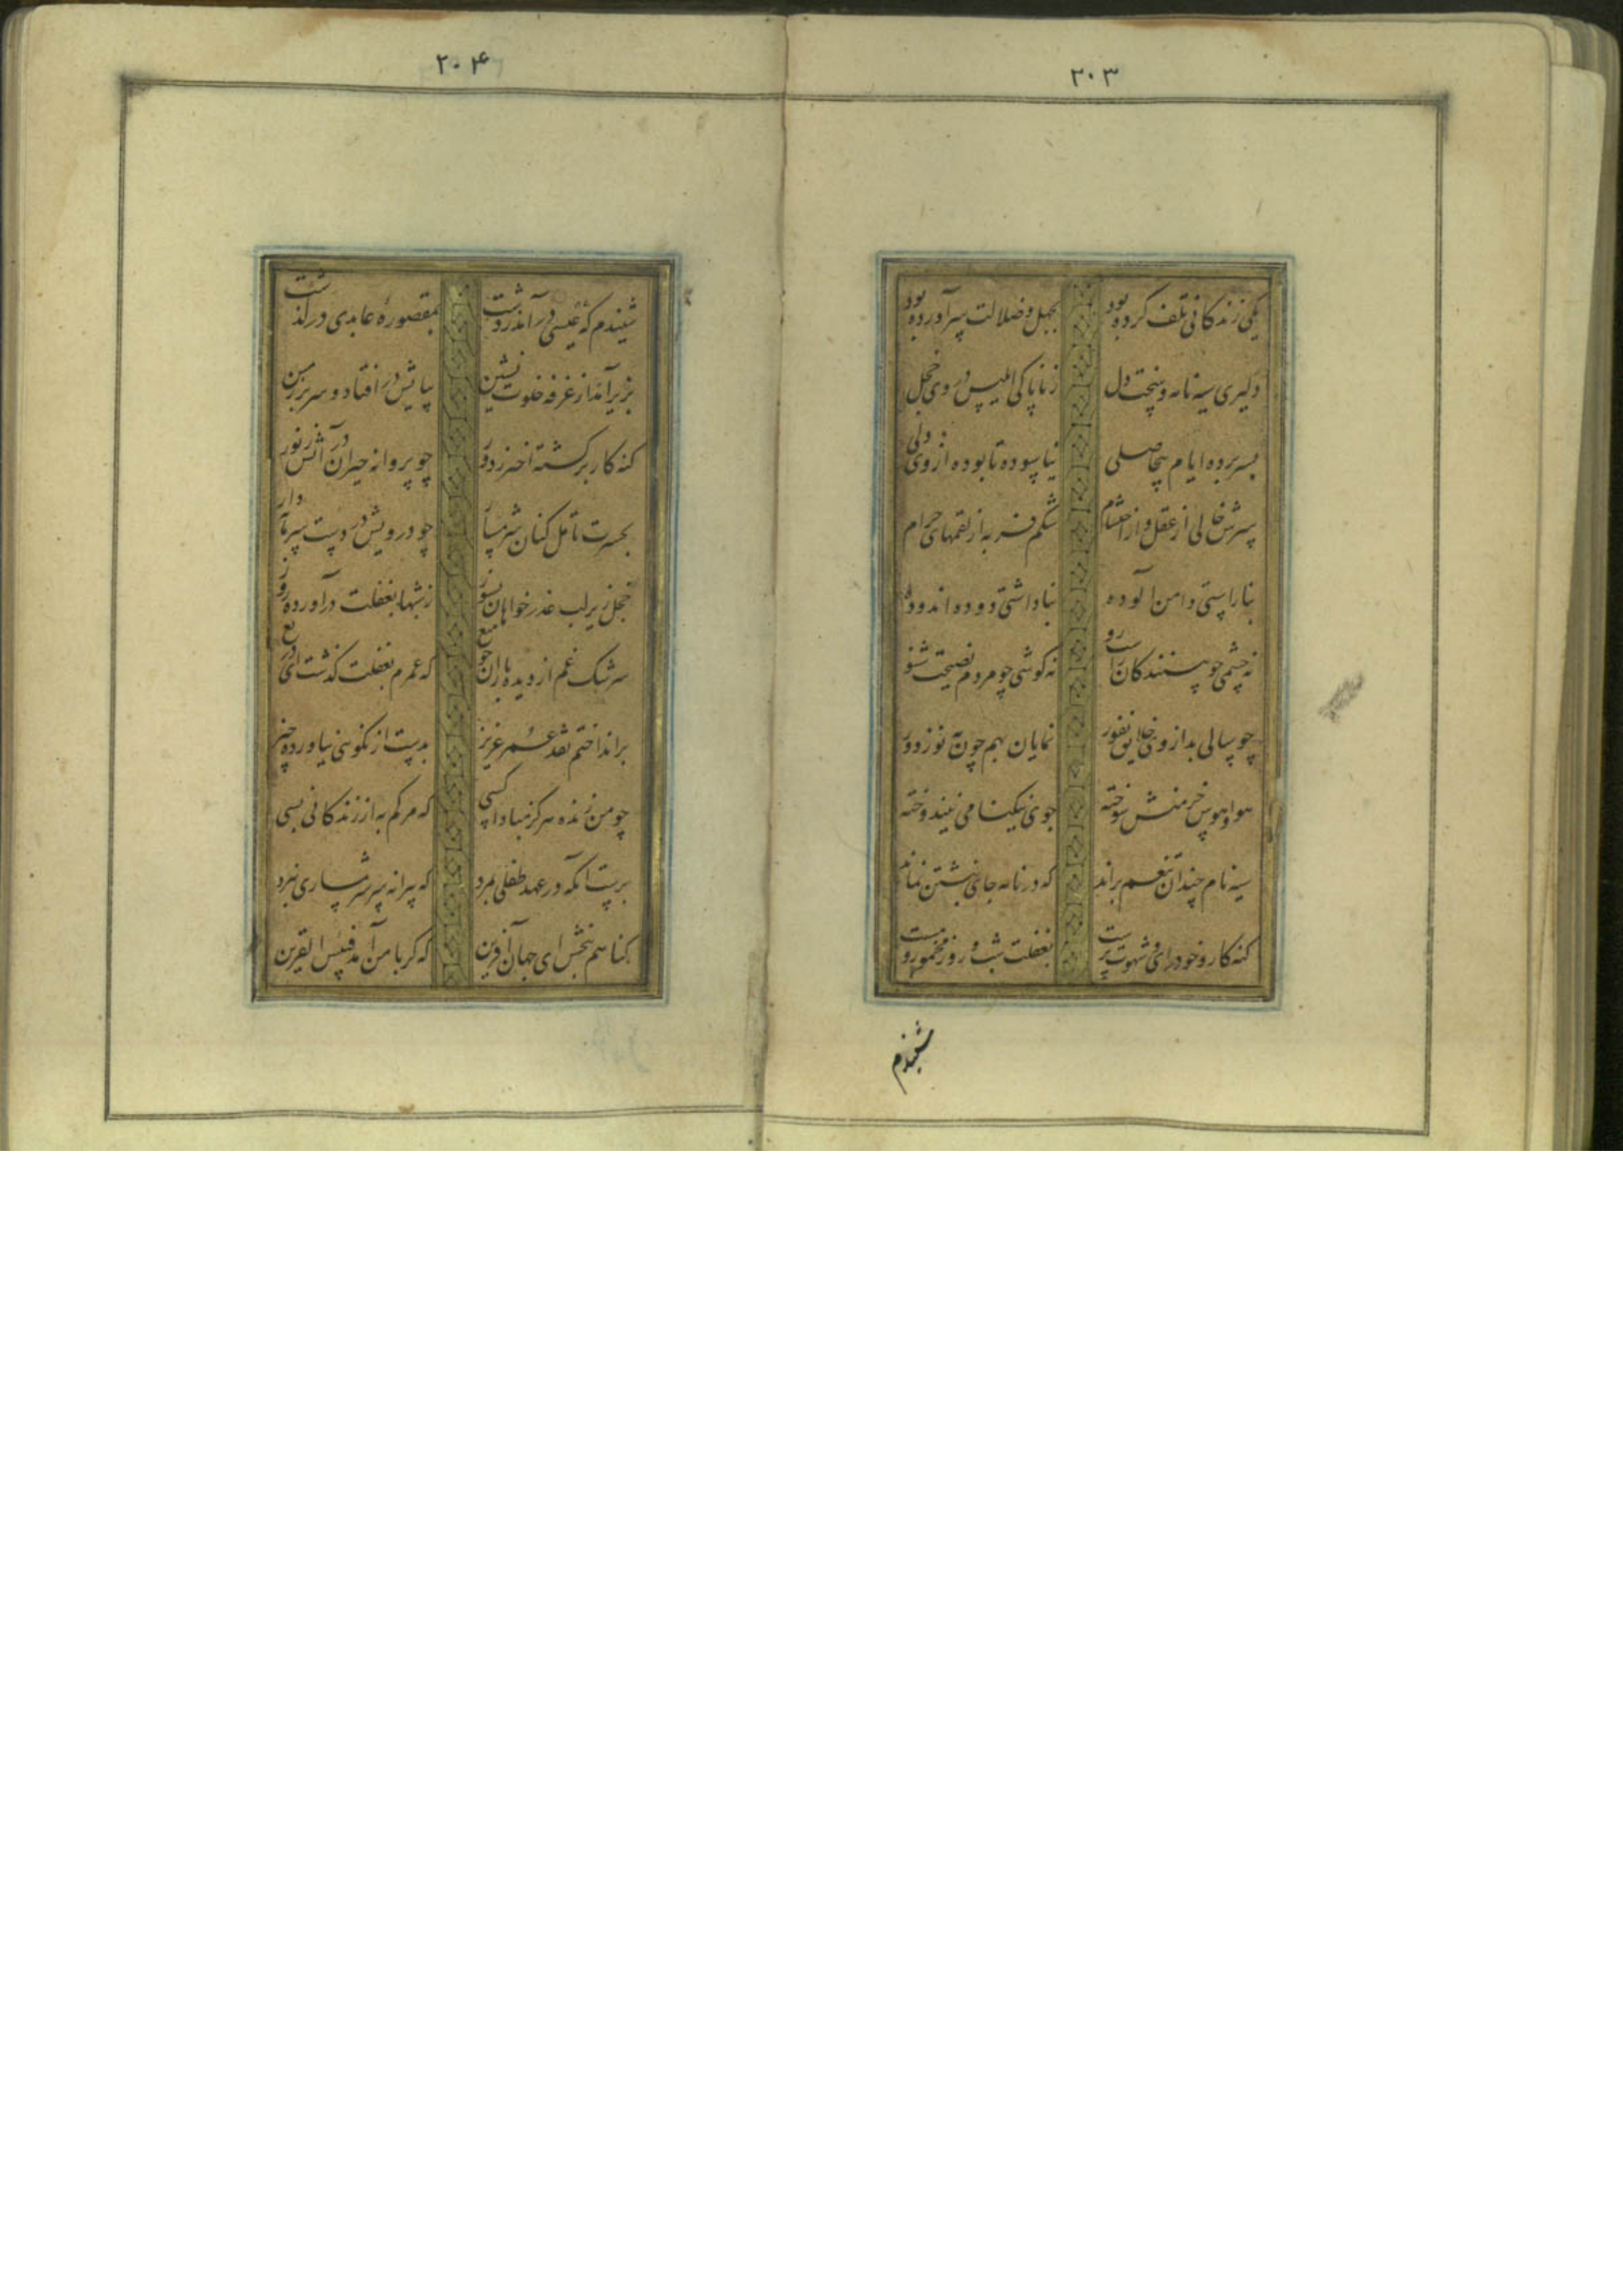 ۲۰۳
یکی زندکانی تلف کرده بود بجهل و ضلالت سرآورده بود
دلیری سیه نامه و سختدل ز ناپاکی ابلیس در وی خجل
بسر برده ایام بیحاصلی نیاسوده تا بوده از وی دلی
سرش خالی از عقل و از احتشام شکم فربه از لقمهای حرام
بناراستی دامن آلوده بناداشتی دوده اندوده
نه چشمی چو بینندکان راست رو نه کوشی چو مردم نصیحت شنو
چو سالی بد از وی خلایق نفور نمایان بهم چون مه نو ز دور
هوا و هوس خرمنش سوخته جوی نیکنامی نیندوخته
سیه نام چندان تنعم براند که در نامه جای نبشتن نماند
کنه کار و خودرای و شهوت پرست بغفلت شب و روز مخمور و مست
شنیدم
۲۰۴
شنیدم که عیسی درآمد ز دشت بمقصوره عابدی در کذشت
بزیر آمد از غرفه خلوت نشین بپایش در افتاد و سر بر زمین
کنه کار برکشته اختر ز دور چو پروانه حیران در آتش ز نور
بحسرت تامل کنان شرمسار چو درویش در دست سرمایه دار
خجل زیر لب عذر خواهان بسوز ز شبها بغفلت درآورده روز
سرشک غم از دیده باران چو میغ که عمرم بغفلت کذشت ای دریغ
برانداختم نقد عمر عزیز بدست از نکوئی نیاورده چیز
چو من زنده هرکز مبادا کسی که مرکم به از زندکانی بسی
برست آنکه در عهد طفلی بمرد که پیرانه سر شرمساری نبرد
کناهم ببخش ای جهان آفرین که کر با من آمد فبئس القرین